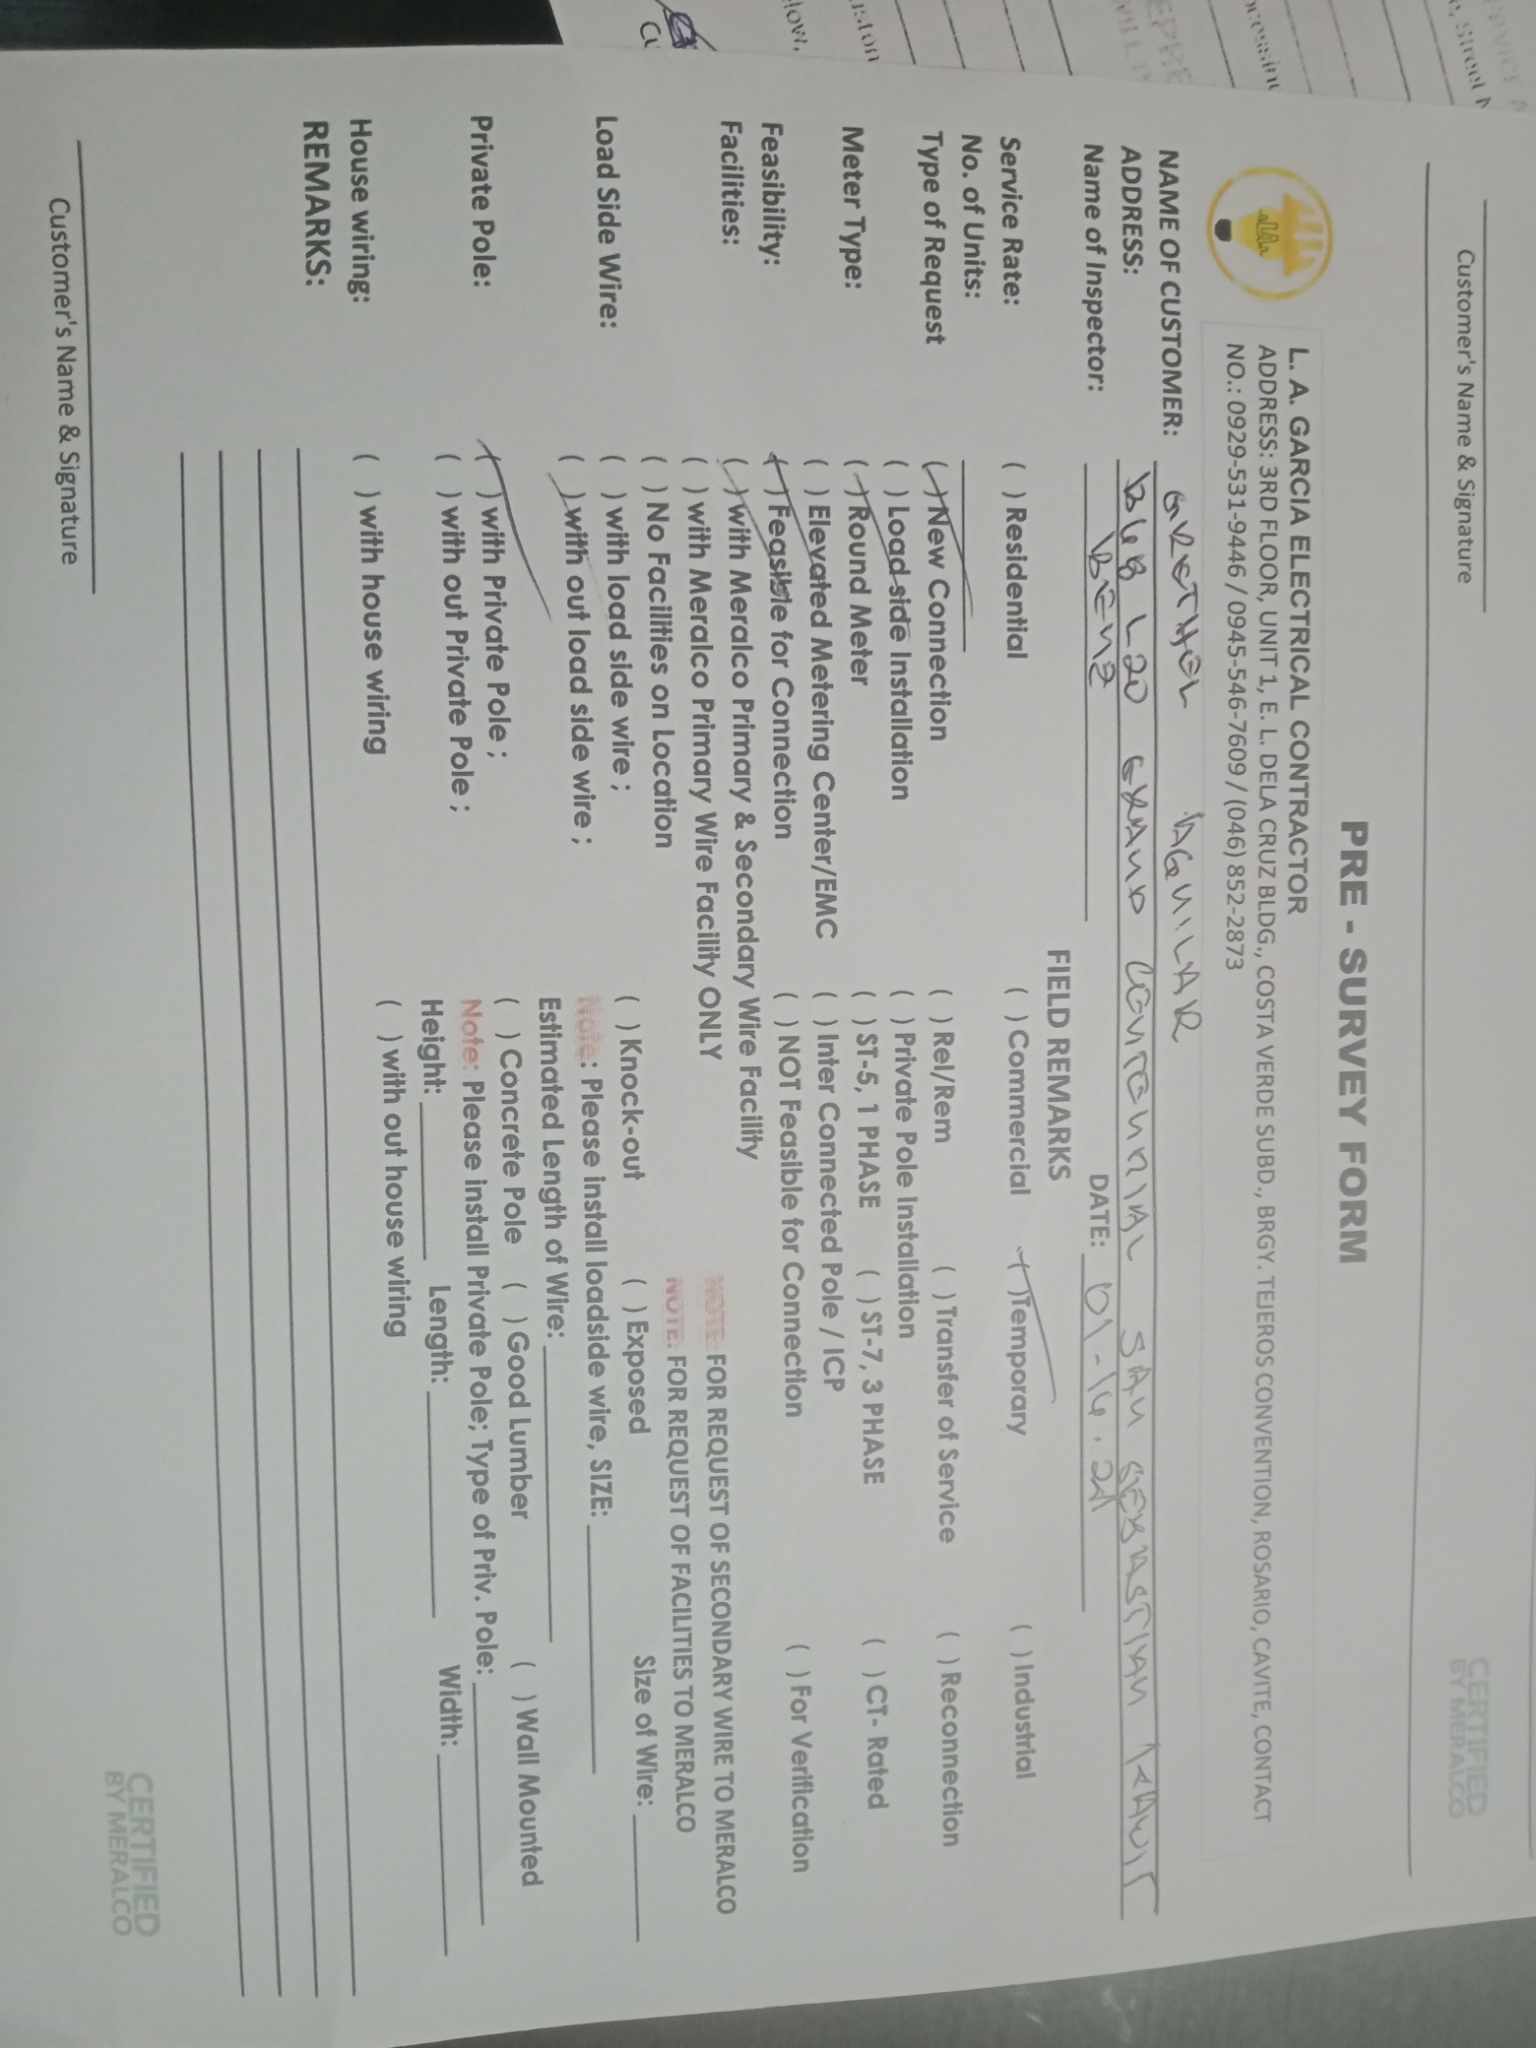 Customer's Name & Signature
CERTIFIED
BY MERALCO
PRE - SURVEY FORM
L. A. GARCIA ELECTRICAL CONTRACTOR
ADDRESS: 3RD FLOOR, UNIT 1, E. L. DELA CRUZ BLDG., COSTA VERDE SUBD., BRGY. TEJEROS CONVENTION, ROSARIO, CAVITE, CONTACT
NO.: 0929-531-9446 / 0945-546-7609 / (046) 852-2873
NAME OF CUSTOMER: GRETHEL AGUILAR
ADDRESS: B68 L20 GRAND CENTENNIAL SAN SEBASTIAN KAWIT
Name of Inspector: BENZ DATE: 01-16-21
FIELD REMARKS
Service Rate: ( ) Residential ( ) Commercial (✓) Temporary ( ) Industrial
No. of Units:
Type of Request (✓) New Connection ( ) Rel/Rem ( ) Transfer of Service ( ) Reconnection
( ) Load side Installation ( ) Private Pole Installation
Meter Type: (✓) Round Meter ( ) ST-5, 1 PHASE ( ) ST-7, 3 PHASE ( ) CT- Rated
( ) Elevated Metering Center/EMC ( ) Inter Connected Pole / ICP
Feasibility: (✓) Feasible for Connection ( ) NOT Feasible for Connection ( ) For Verification
Facilities: (✓) with Meralco Primary & Secondary Wire Facility
( ) with Meralco Primary Wire Facility ONLY NOTE: FOR REQUEST OF SECONDARY WIRE TO MERALCO
( ) No Facilities on Location NOTE: FOR REQUEST OF FACILITIES TO MERALCO
Load Side Wire: ( ) with load side wire ; ( ) Knock-out ( ) Exposed Size of Wire:
(✓) with out load side wire ; Note: Please install loadside wire, SIZE:
Estimated Length of Wire:
Private Pole: (✓) with Private Pole ; ( ) Concrete Pole ( ) Good Lumber ( ) Wall Mounted
( ) with out Private Pole ; Note: Please install Private Pole; Type of Priv. Pole:
Height: Length: Width:
House wiring: ( ) with house wiring ( ) with out house wiring
REMARKS:
CERTIFIED
BY MERALCO
Customer's Name & Signature